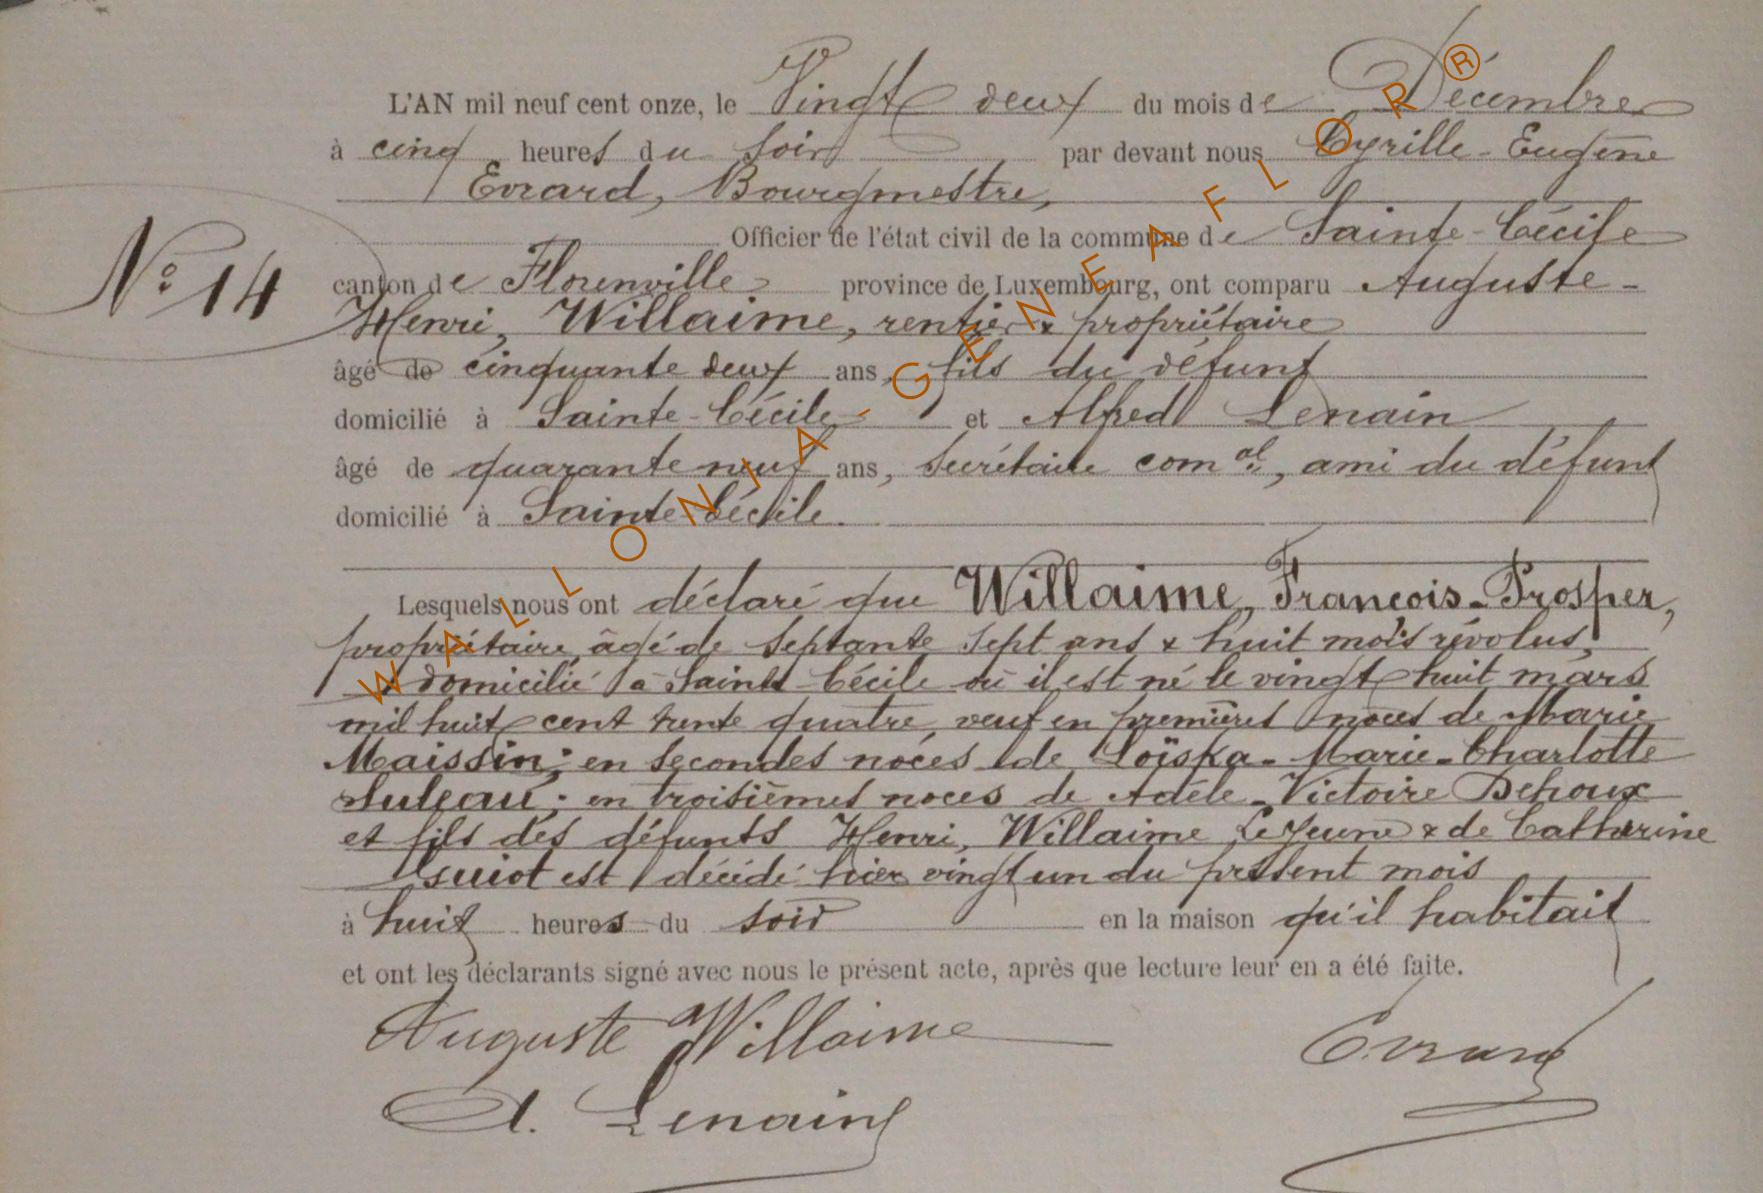 L'AN mil neuf cent onze, le Vingt deux du mois de Décembre
à cinq heures du soir par devant nous Cyrille-Eugène
Evrard, Bourgmestre,
Officier de l'état civil de la commune de Sainte-Cécile
N° 14
canton de Florenville province de Luxembourg, ont comparu Auguste-
Henri, Willaime, rentier & propriétaire
âgé de cinquante deux ans, fils du défunt
domicilié à Sainte-Cécile et Alfred Lenain
âgé de quarante neuf ans, Secrétaire com.al, ami du défunt
domicilié à Sainte-Cécile.
Lesquels nous ont déclaré que Willaime, François-Prosper,
propriétaire, âgé de septante sept ans & huit mois révolus,
domicilié à Sainte-Cécile où il est né le vingt huit mars
mil huit cent trente quatre, veuf en premières noces de Marie
Maissin; en secondes noces de Loïska-Marie-Charlotte
Suleau; en troisièmes noces de Adèle-Victoire Dehoux
et fils des défunts Henri, Willaime Lejeune & de Catherine
Guiot est décédé hier vingt un du présent mois
à huit heures du soir en la maison qu'il habitait
et ont les déclarants signé avec nous le présent acte, après que lecture leur en a été faite.
Auguste Willaime Evrard
A. Lenain
WALLONIA-GENEAFLOR®